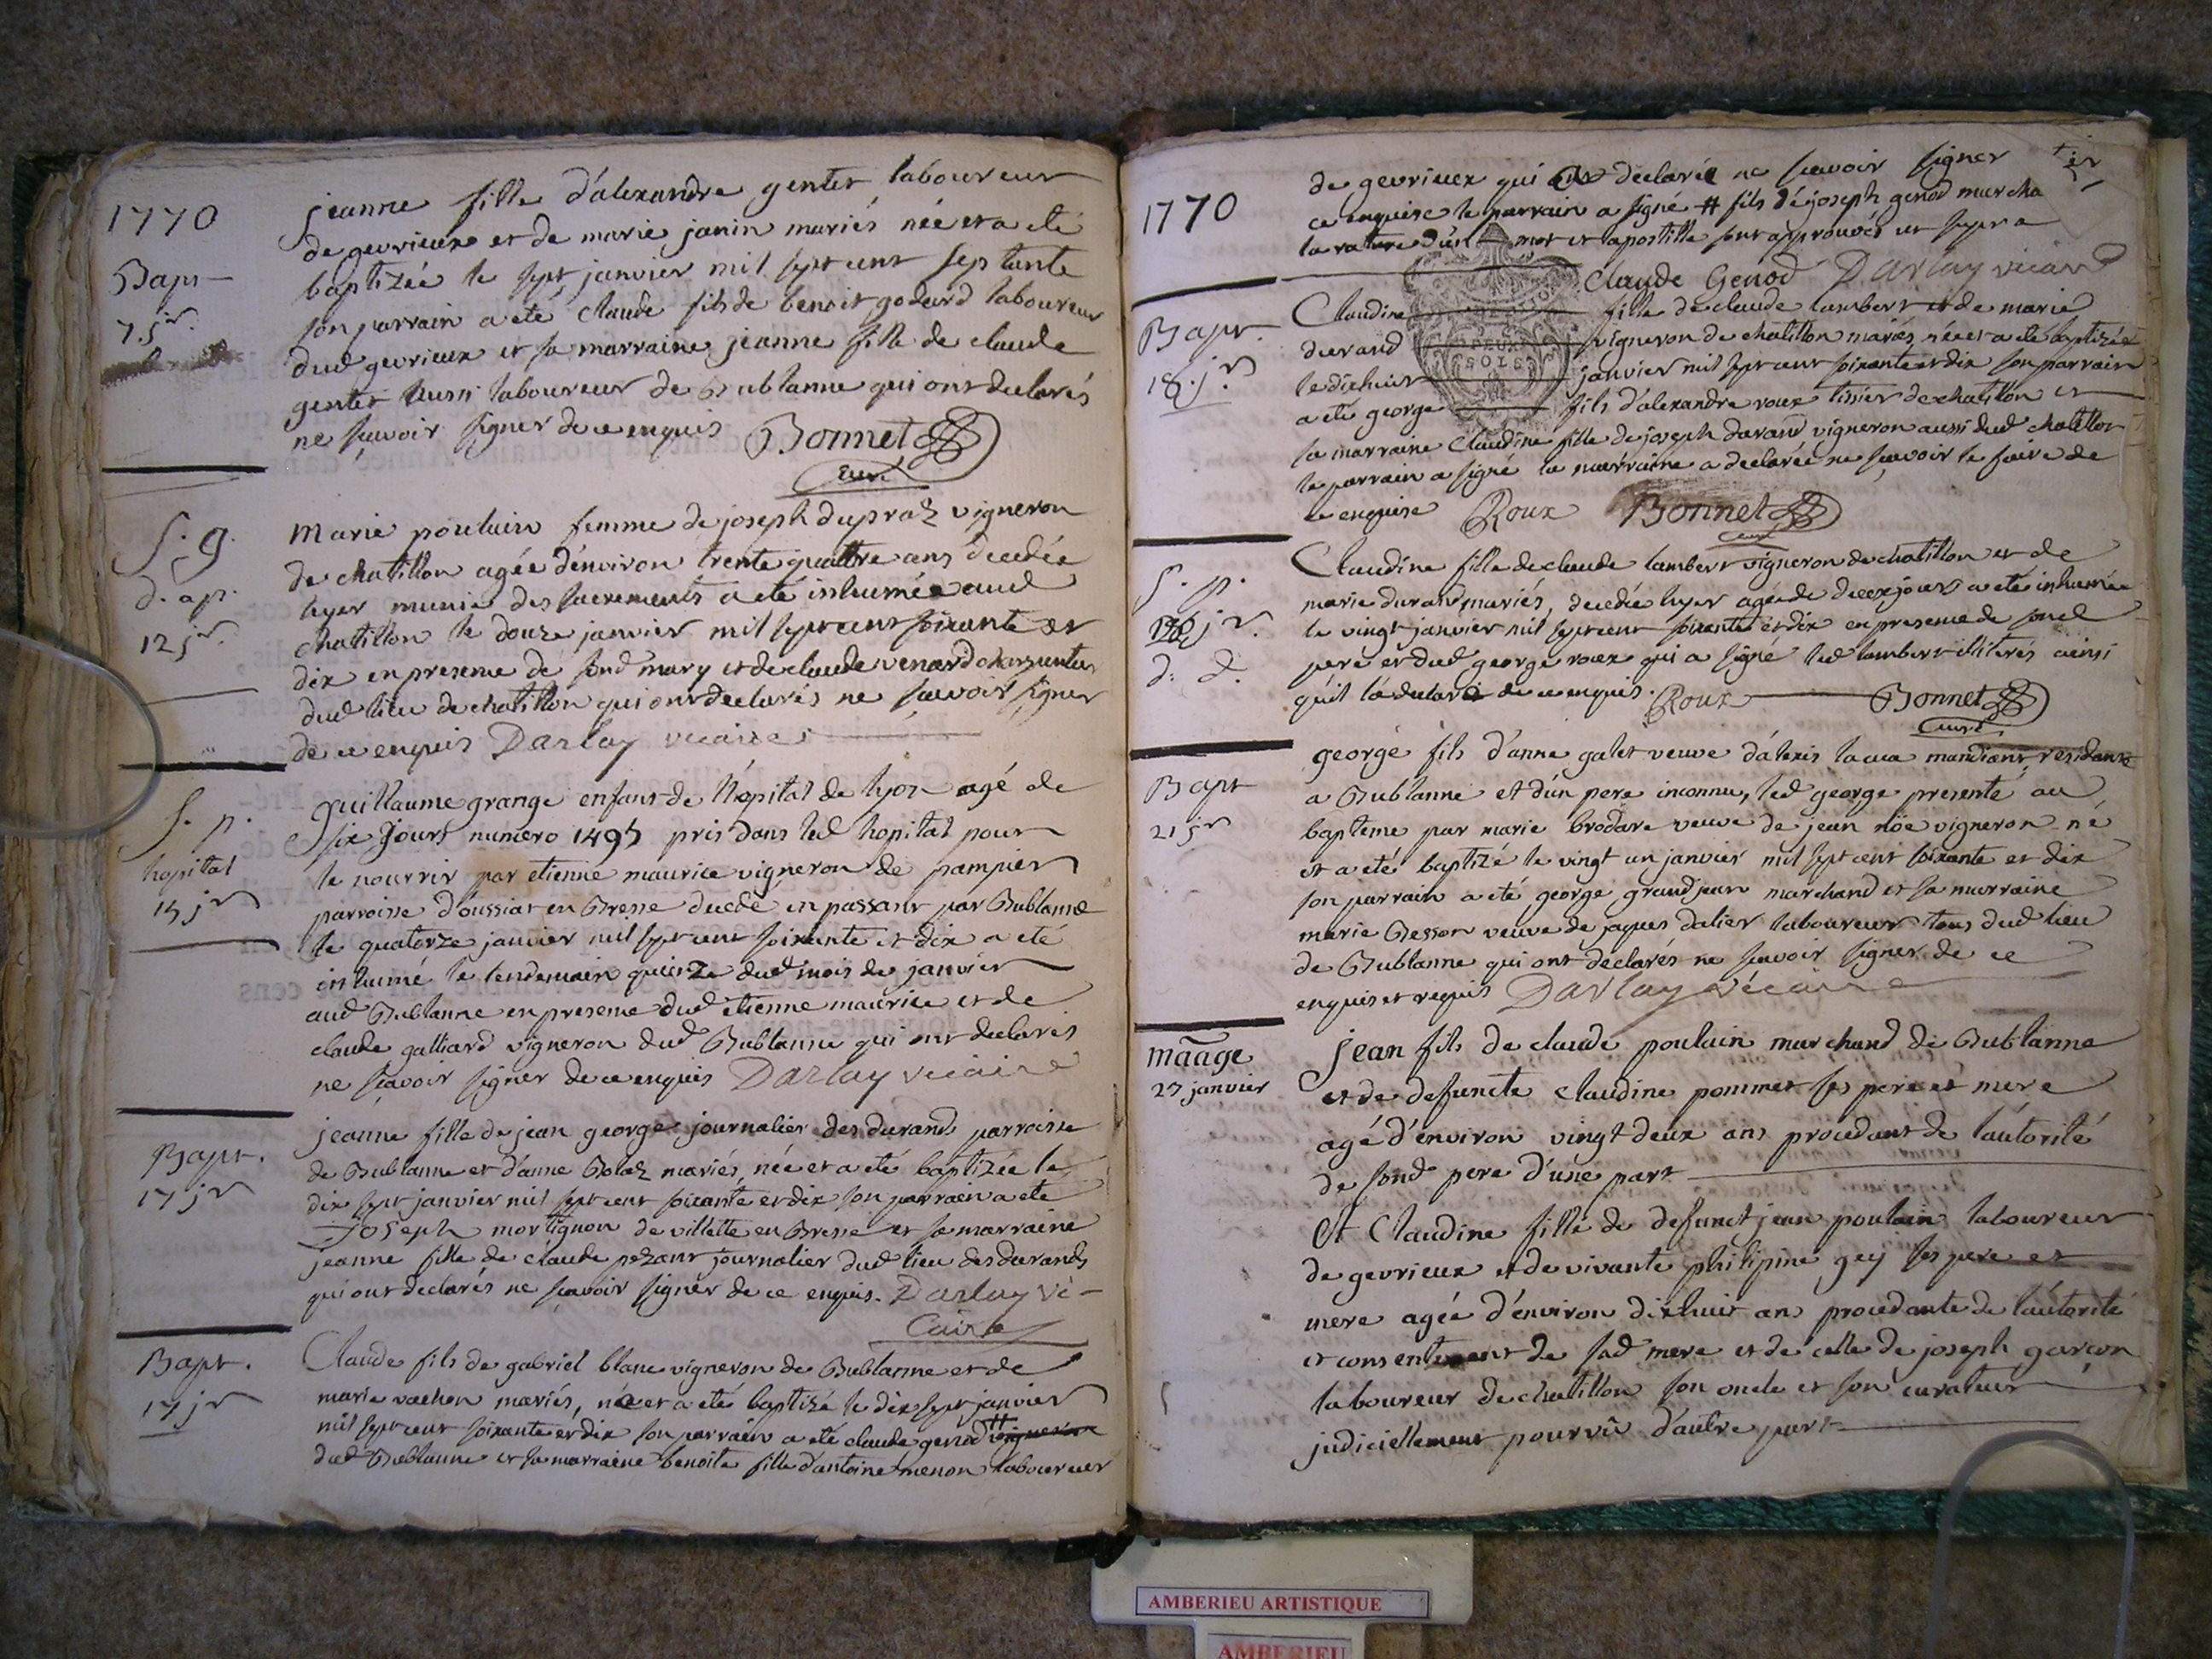 1770
Bapt
7 jr.
jeanne fille d'alexandre gentet laboureur
de gevrieux et de marie janin mariés née et a eté
baptizée le sept janvier mil sept cent septante
son parrain a eté claude fils de benoit godard laboureur
dud gevrieux et sa marraine jeanne fille de claude
gentet aussi laboureur de Bublanne qui ont declarés
ne sçavoir signer de ce enquis Bonnet
curé
S. g.
d. ap.
12 jr.
Marie poulain femme de joseph dupraz vigneron
de chatillon agée d'environ trente quattre ans decedée
hyer munie des sacrements a eté inhumée aud
chatillon le douze janvier mil sept cent soixante et
dix en presence de sond mary et de claude venard charpentier
dud lieu de chatillon qui ont declarés ne sçavoir signer
de ce enquis Darlay vicaire
S. p.
hopital
15 jr
guillaume grange enfant de l'hopital de lyon agé de
six jours numero 1495 pris dans led hopital pour
le nourrir par etienne maurice vigneron de pampier
parroisse d'oussiat en Bresse decedé en passant par Bublanne
le quatorze janvier mil sept cent soixante et dix a eté
inhumé le lendemain quinze dud mois de janvier
aud Bublanne en presence dud etienne maurice et de
claude galliard vigneron dud Bublanne qui ont declarés
ne sçavoir signer de ce enquis Darlay vicaire
Bapt.
17 jr
jeanne fille de jean george journalier des durands parroisse
de Bublanne et d'anne Bolaz mariés, née et a eté baptizée le
dix sept janvier mil sept cent soixante et dix son parrain a eté
Joseph mortignon de villette en Bresse et sa marraine
jeanne fille de claude pezant journalier dud lieu des durands
qui ont declarés ne sçavoir signer de ce enquis. Darlay vi-
caire
Bapt.
17 jr
Claude fils de gabriel blanc vigneron de Bublanne et de
marie vachon mariés, né et a eté baptisé le dix sept janvier
mil sept cent soixante et dix son parrain a eté claude genod # vigneron
dud Bublanne et sa marraine benoite fille d'antoine menon laboureur
1770
de gevrieux qui declarée ne sçavoir signer
ce enquise le parrain a signé # fils de joseph genod marcha
la rature d'un mot et l'apostille sont approuvés ut supra
Claude Genod Darlay vicaire
Bapt.
18. jr
Claudine fille de claude lambert et de marie
durand vigneron de chatillon mariés, née et a eté baptizée
le dixhuit janvier mil sept cent soixante et dix son parrain
a eté george fils d'alexandre roux tissier de chatillon et
sa marraine Claudine fille de joseph durand vigneron aussi dud chatillon
le parrain a signé la marraine a declarée ne sçavoir le faire de
ce enquise Roux Bonnet
curé
S. p.
20 jr.
d. d.
Claudine fille de claude lambert vigneron de chatillon et de
marie durand mariés, decedée hyer agée de deux jours a eté inhumée
le vingt janvier mil sept cent soixante et dix en presence de sond
pere et dud george roux qui a signé led lambert illiterés ainsi
qu'il l'a declaré de ce enquis. Roux Bonnet
curé
Bapt
21 jr
george fils d'anne galet veuve d'alexis mandiant residante
a Bublanne et d'un pere inconnu, led george presenté au
bapteme par marie brodare veuve de jean nöe vigneron né
et a eté baptizé le vingt un janvier mil sept cent soixante et dix
son parrain a eté george grandjean marchand et sa marraine
marie Besson veuve de jaques dalier laboureur tous dud lieu
de Bublanne qui ont declarés ne sçavoir signer de ce
enquis et requis Darlay vicaire
maage
23 janvier
jean fils de claude poulain marchand de Bublanne
et de defuncte claudine pommet ses pere et mere
agé d'environ vingt deux ans procedant de l'autorité
de sond pere d'une part
Et Claudine fille de defunct jean poulain laboureur
de gevrieux et de vivante philipine gey ses pere et
mere agée d'environ dixhuit ans procedante de l'autorité
et consentement de sad mere et de celle de joseph garçon
laboureur de chatillon son oncle et son curateur
judiciellement pourvû d'autre part
AMBERIEU ARTISTIQUE
AMBERIEU